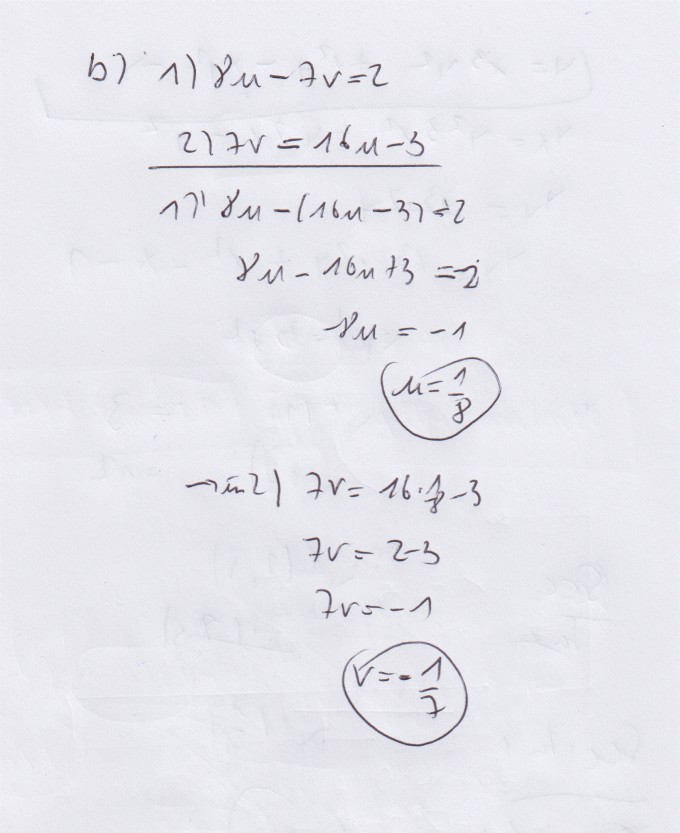 b) 1) 8u - 7v = 2
2) 7v = 16u - 3
1)' 8u - (16u - 3) = 2
8u - 16u + 3 = 2
-8u = -1
u = 1/8
→ in 2) 7v = 16 · 1/8 - 3
7v = 2 - 3
7v = -1
v = - 1/7